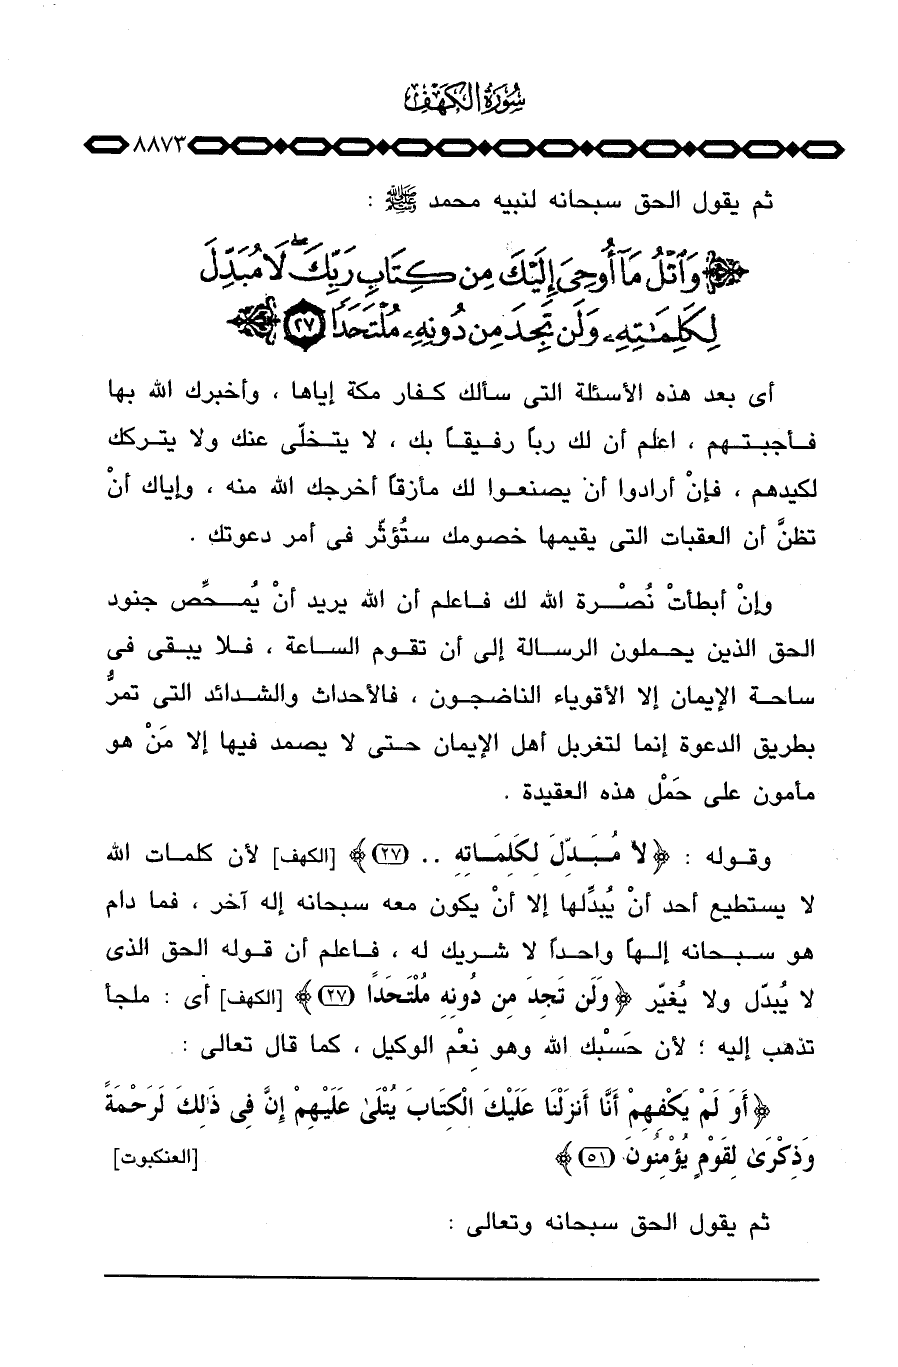 سُورَةُ الكَهْفِ
٨٨٧٣
ثم يقول الحق سبحانه لنبيه محمد ﷺ :
﴿ وَٱتْلُ مَآ أُوحِىَ إِلَيْكَ مِن كِتَابِ رَبِّكَ ۖ لَا مُبَدِّلَ
لِكَلِمَـٰتِهِۦ وَلَن تَجِدَ مِن دُونِهِۦ مُلْتَحَدًا ٢٧ ﴾
أى بعد هذه الأسئلة التى سألك كفار مكة إياها ، وأخبرك الله بها
فأجبتهم ، اعلم أن لك رباً رفيقاً بك ، لا يتخلّى عنك ولا يتركك
لكيدهم ، فإنْ أرادوا أنْ يصنعوا لك مأزقاً أخرجك الله منه ، وإياك أنْ
تظنَّ أن العقبات التى يقيمها خصومك ستُؤثِّر فى أمر دعوتك .
وإنْ أبطأتْ نُصْرة الله لك فاعلم أن الله يريد أنْ يُمحِّص جنود
الحق الذين يحملون الرسالة إلى أن تقوم الساعة ، فلا يبقى فى
ساحة الإيمان إلا الأقوياء الناضجون ، فالأحداث والشدائد التى تمرُّ
بطريق الدعوة إنما لتغربل أهل الإيمان حتى لا يصمد فيها إلا مَنْ هو
مأمون على حَمْل هذه العقيدة .
وقوله : ﴿ لا مُبَدِّلَ لِكَلِمَاتِهِ .. (٢٧) ﴾ [الكهف] لأن كلمات الله
لا يستطيع أحد أنْ يُبدِّلها إلا أنْ يكون معه سبحانه إله آخر ، فما دام
هو سبحانه إلهاً واحداً لا شريك له ، فاعلم أن قوله الحق الذى
لا يُبدّل ولا يُغيّر ﴿ وَلَن تَجِدَ مِن دُونِهِ مُلْتَحَدًا (٢٧) ﴾ [الكهف] أى : ملجأ
تذهب إليه ؛ لأن حَسْبك الله وهو نِعْم الوكيل ، كما قال تعالى :
﴿ أَوَ لَمْ يَكْفِهِمْ أَنَّا أَنزَلْنَا عَلَيْكَ الْكِتَابَ يُتْلَىٰ عَلَيْهِمْ إِنَّ فِى ذَٰلِكَ لَرَحْمَةً
وَذِكْرَىٰ لِقَوْمٍ يُؤْمِنُونَ (٥١) ﴾ [العنكبوت]
ثم يقول الحق سبحانه وتعالى :